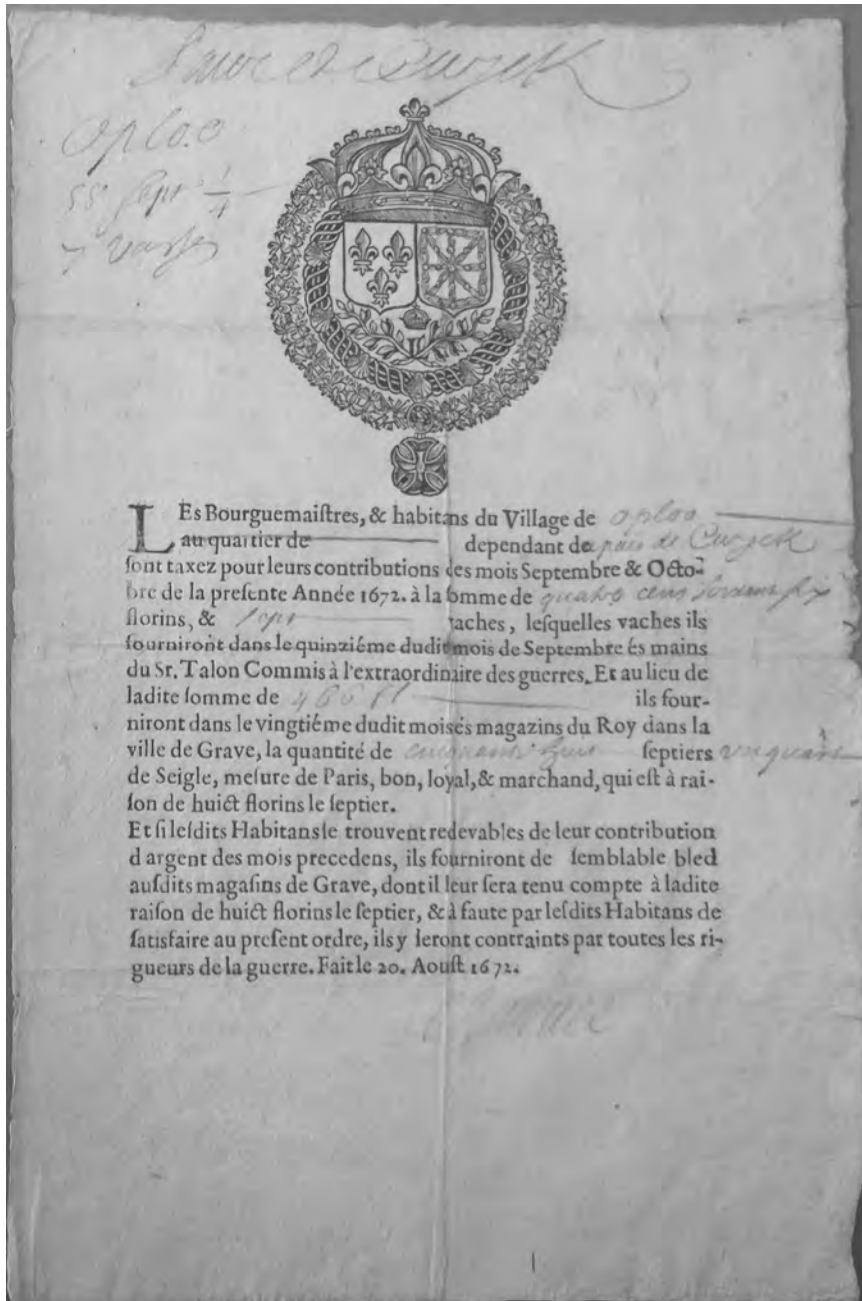 oploo
7 vaches
LEs Bourguemaiſtres, & habitans du Village de oploo
au quartier de dependant du païs de Cuyck
ſont taxez pour leurs contributions des mois Septembre & Octo-
bre de la preſente Année 1672. à la ſomme de quatre cens soixante six
florins, & sept vaches, leſquelles vaches ils
fourniront dans le quinziéme dudit mois de Septembre és mains
du Sr. Talon Commis à l'extraordinaire des guerres. Et au lieu de
ladite ſomme de 466 fl ils four-
niront dans le vingtiéme dudit mois és magazins du Roy dans la
ville de Grave, la quantité de ſeptiers
de Seigle, meſure de Paris, bon, loyal, & marchand, qui eſt à rai-
ſon de huict florins le ſeptier.
Et ſi leſdits Habitans ſe trouvent redevables de leur contribution
d argent des mois precedens, ils fourniront de ſemblable bled
auſdits magaſins de Grave, dont il leur ſera tenu compte à ladite
raiſon de huict florins le ſeptier, & à faute par leſdits Habitans de
ſatisfaire au preſent ordre, ils y ſeront contraints par toutes les ri-
gueurs de la guerre. Fait le 20. Aouſt 1672.